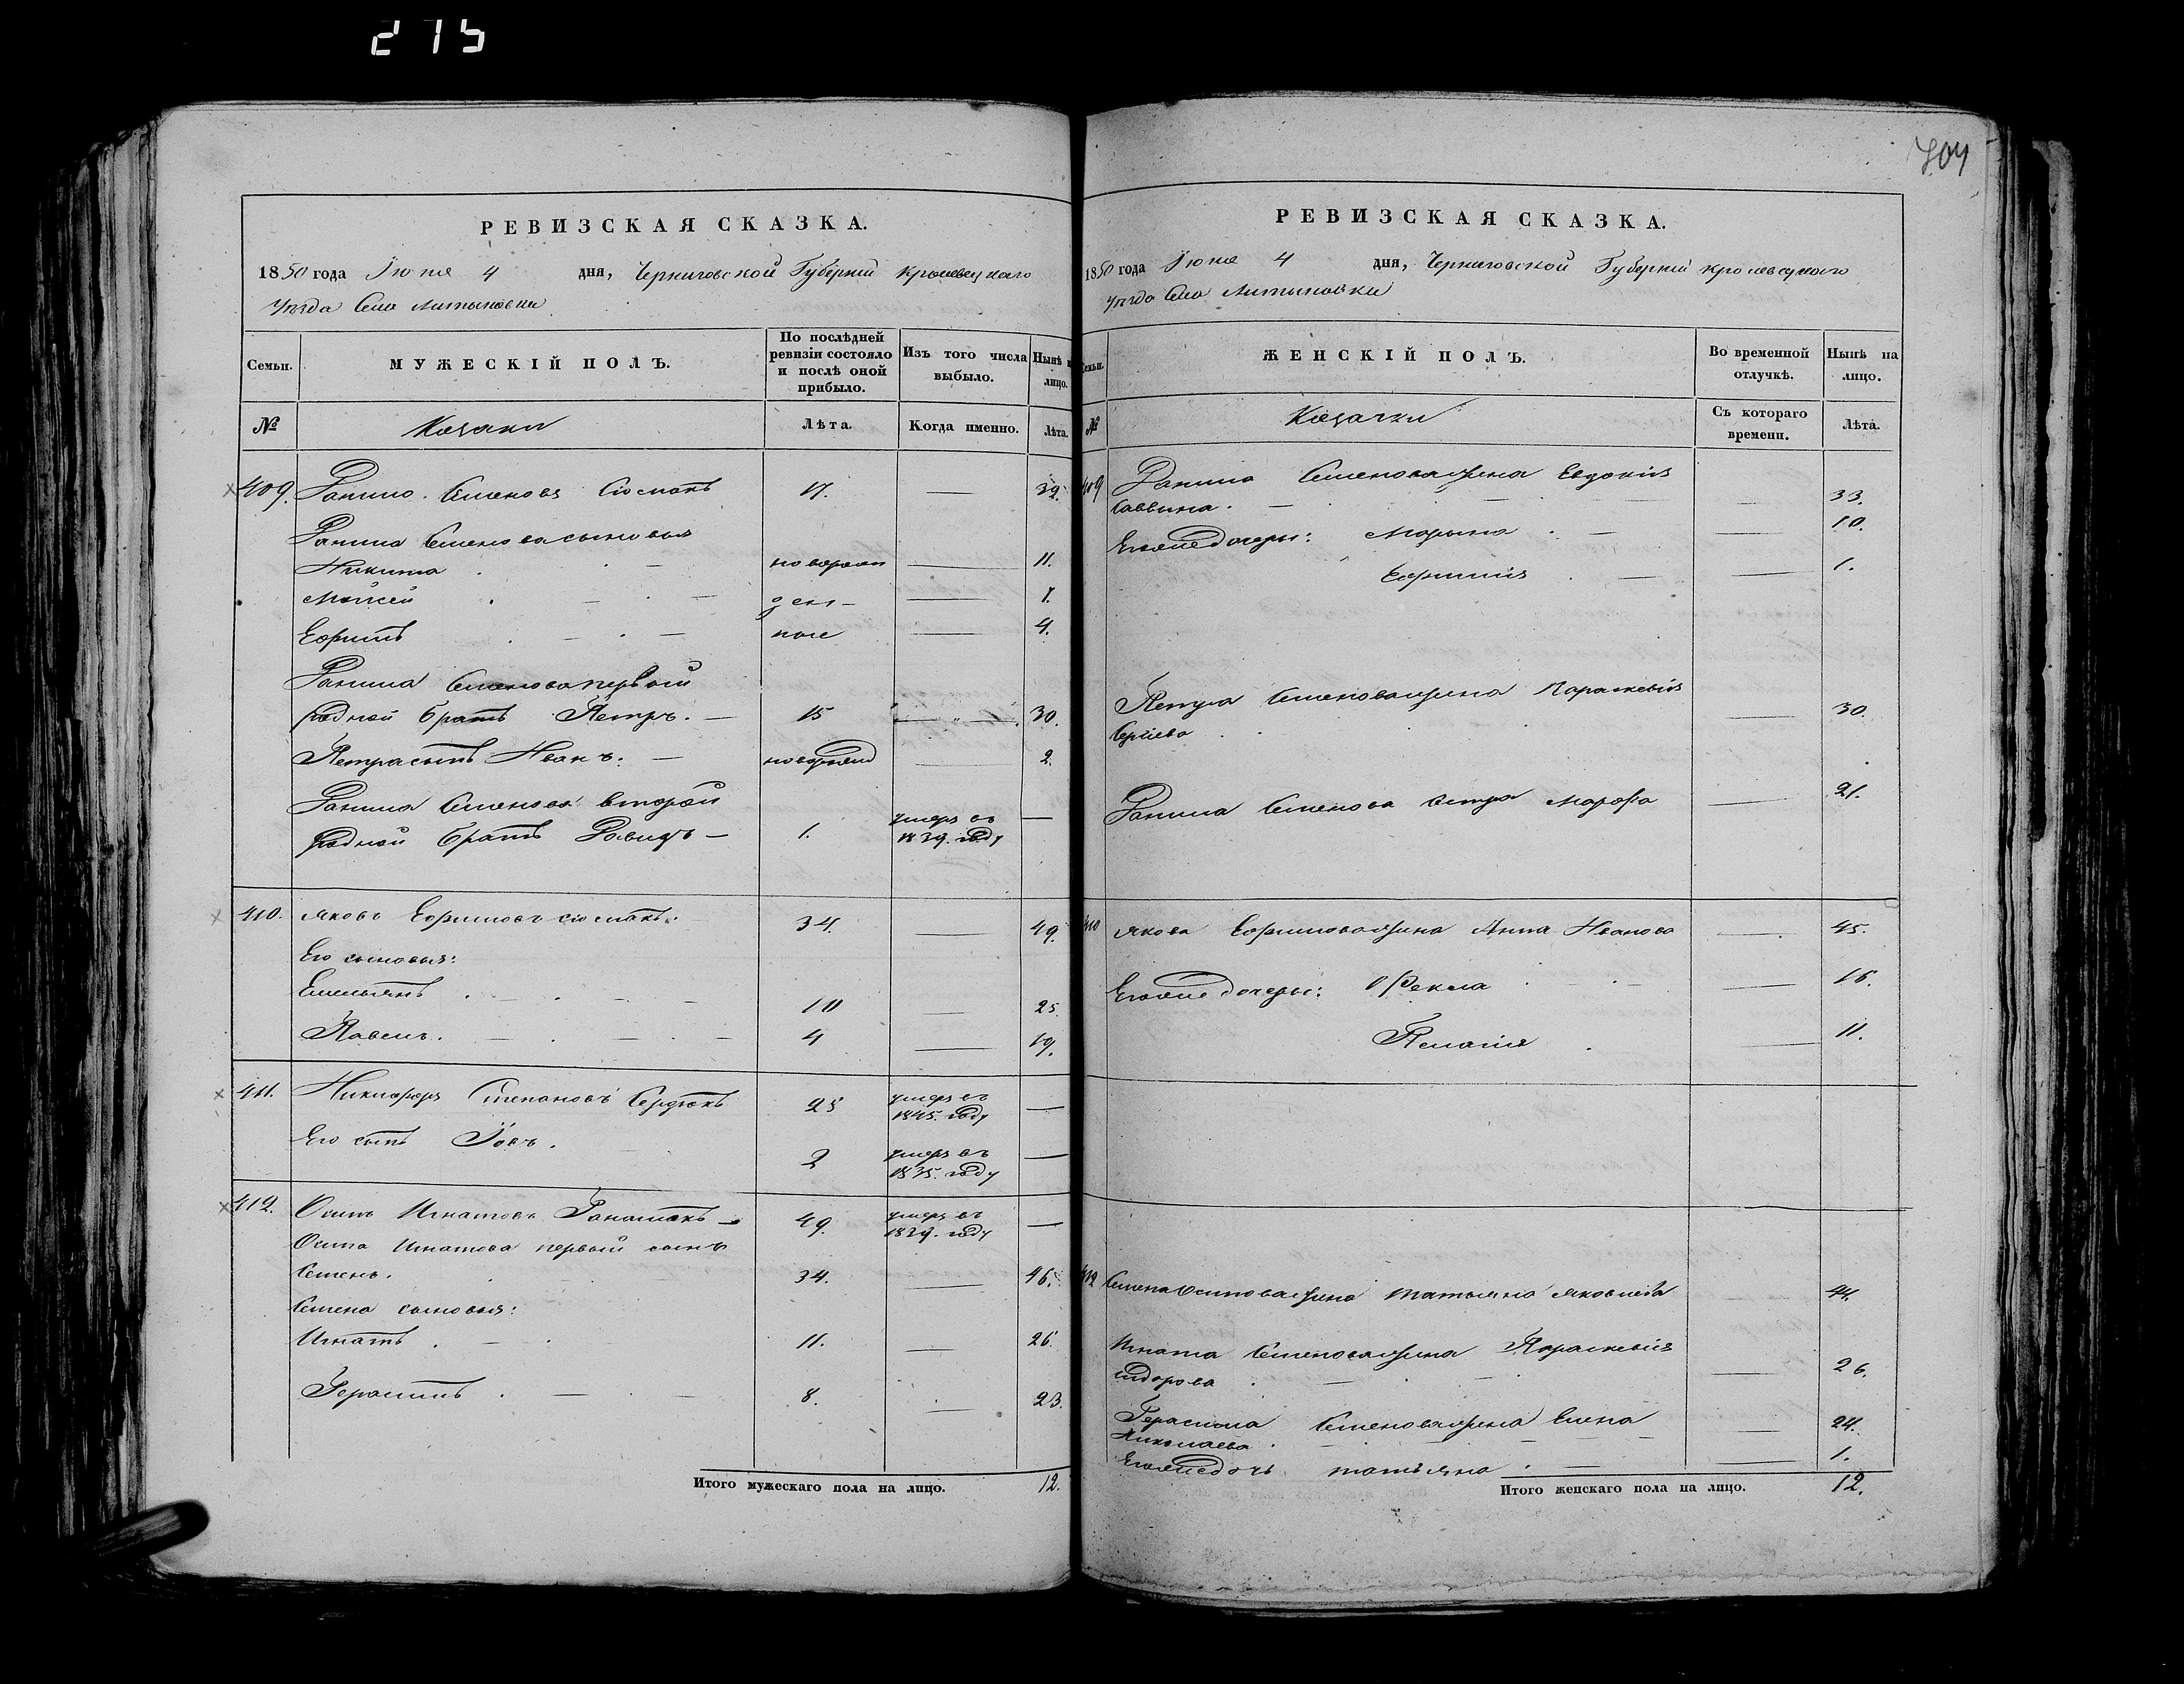 275
РЕВИЗСКАЯ СКАЗКА.
1850 года Іюня 4 дня, Черниговской Губерніи Кролевецкаго
Уѣзда Села Литыновки
Семьи. МУЖЕСКІЙ ПОЛЪ. По послѣдней ревизіи состояло и послѣ оной прибыло. Изъ того числа выбыло. Нынѣ н лицо.
№ Козаки Лѣта. Когда именно. Лѣта.
409. Данило Семеновъ 17. — 32.
Данила Семенова сыновья
Никита новорож 11.
Моисей ден — 7.
Ефимъ ные 4.
Данила Семенова первой
родной братъ Петръ. — 15 — 30.
Петра сынъ Иванъ. — новорожд 2.
Данила Семенова второй
родной братъ Давидъ — 1. умеръ въ 1839. году —
410. Яковъ Ефимовъ 34. — 49.
Его сыновья:
Емельянъ 10 — 25.
Павелъ. 4 — 19.
411. Никифоръ Степановъ Сердюкъ 25 умеръ въ 1845. году —
Его сынъ Іовъ. 2 умеръ въ 1835. году —
412. Осипъ Игнатовъ 49. умеръ въ 1839. году —
Осипа Игнатова первый сынъ
Семенъ. 34. — 46.
Семена сыновья:
Игнатъ. 11. — 26.
Герасимъ 8. — 23.
Итого мужескаго пола на лицо. 12.
704
РЕВИЗСКАЯ СКАЗКА.
1850 года Іюня 4 дня, Черниговской Губерніи Кролевецкаго
Уѣзда Села Литыновки
Семьи. ЖЕНСКІЙ ПОЛЪ. Во временной отлучкѣ. Нынѣ на лицо.
№ Козачки Съ котораго времени. Лѣта.
409 Данила Семенова жена Евдокія
Саввина. — 33.
Его же дочери: Марина — 10.
Ефимія — 1.
Петра Семенова жена Параскевія
— 30.
Данила Семенова сестра Марфа — 21.
410 Якова Ефимова жена Анна Иванова — 45.
Его же дочери: Фекла — 16.
Пелагія — 11.
412 Семена Осипова жена Татьяна Яковлева — 44.
Игната Семенова жена Параскевія
Сидорова — 26.
Герасима Семенова жена Елена
Николаева — 24.
Его же дочь Татьяна — 1.
Итого женскаго пола на лицо. 12.